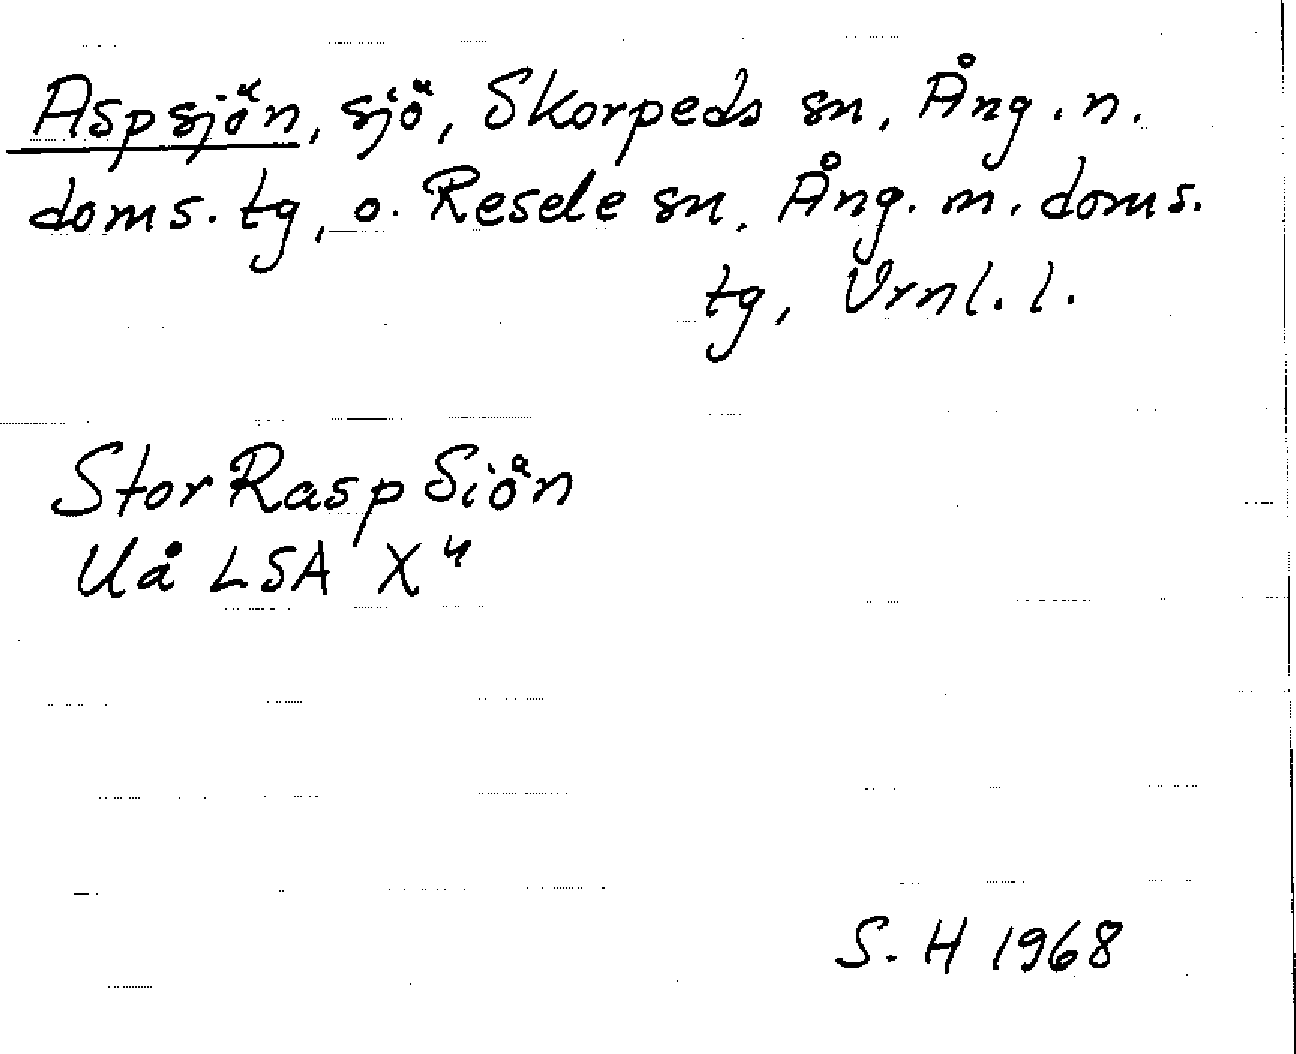 Aspsjön, sjö, Skorpeds sn, Ång. n.
doms. tg, o. Resele sn. Ång. m. doms.
tg, Vrnl. l.
StorRaspSiön
Uå LSA X⁴
S. H 1968